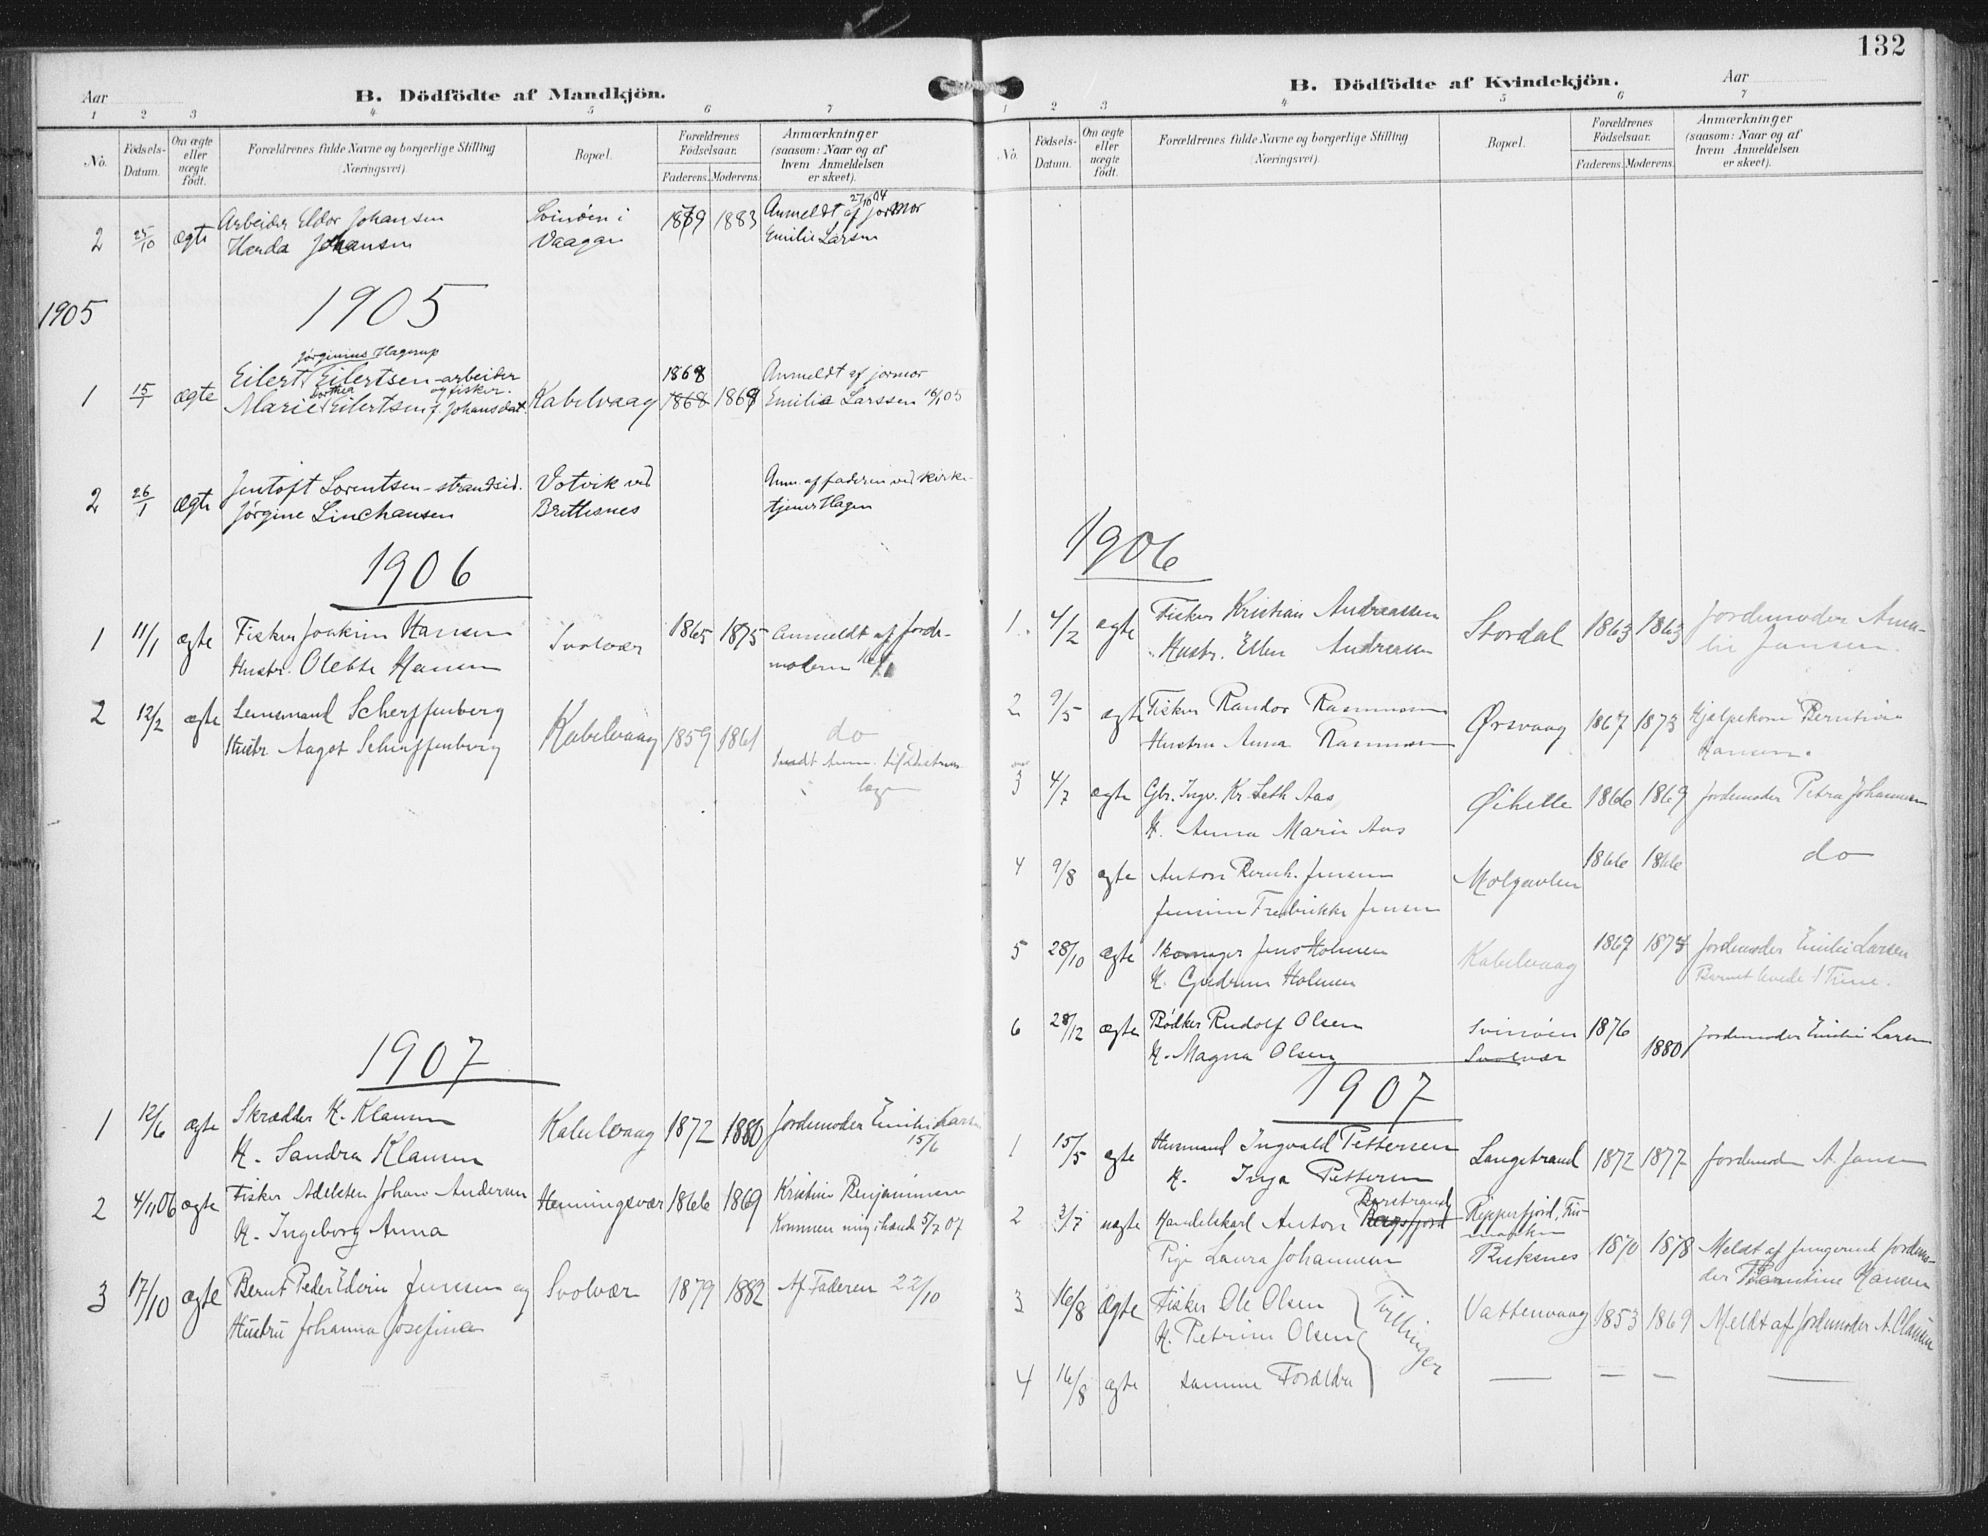 Aar
B. Dödfödte af Mandkjön.
1 2 3 4 5 6 7
No.
Födsels-
Datum.
Om ægte
eller
uægte
födt.
Forældrenes fulde Navne og borgerlige Stilling
(Næringsvei).
Bopæl.
Forældrenes
Födselsaar.
Faderens. Moderens.
Anmærkninger
(saasom: Naar og af
hvem Anmeldelsen
er skeet).
2 25/10 ægte Arbeider Eldor Johansen Svinøen i 1879 1883 Anmeldt af jormor 27/10 04
Harda Johansen Vaagan Emilie Larsen
1905 1905
Jørginius Hagerup
1 15/1 ægte Eilert Eilertsen - arbeider og fisker. Kabelvaag 1868 1868 Anmeldt af jormor
Marie Dorthea Eilertsen f. Johansdat. 1868 Emilie Larssen 16/1 05
2 26/1 ægte Jentoft Lorentsen - strandsid. Votvik ved Anm. af faderen ved kirke-
Jørgine Linchausen Brettesnes tjener Hagen
1906
1 11/1 ægte Fisker Joakim Hansen Svolvær 1865 1875 Anmeldt af Jorde-
Hustr. Olette Hansen moderen
2 12/2 ægte Lensmand Scherffenberg Kabelvaag 1859 1861 do
Hustr Aagot Scherffenberg
1907
1 12/6 ægte Skrædder K. Klausen Kabelvaag 1872 1880 Jordemoder Emilie Larsen
H. Sandra Klausen 15/6
2 4/11 06 ægte Fisker Adelsten Johan Andersen Henningsvær 1866 1869 Kristine Benjaminsen
H. Ingeborg Anna Kommen mig i hænde 5/7 07
3 17/10 ægte Bernt Peder Edvin Jensen og Svolvær 1879 1882 Af Faderen 22/10
Hustru Johanna Josefine
132
B. Dödfödte af Kvindekjön.
Aar
1 2 3 4 5 6 7
No.
Födsels-
Datum.
Om ægte
eller
uægte
födt.
Forældrenes fulde Navne og borgerlige Stilling
(Næringsvei)
Bopæl.
Forældrenes
Födselsaar.
Faderens. Moderens.
Anmærkninger
(saasom: Naar og af
hvem Anmeldelsen
er skeet).
1906
1. 4/2 ægte Fisker Kristian Andreassen Stordal 1863 1863 Jordemoder Ama-
Hustr. Ellen Andreasen lie Jansen.
2 9/5 ægte Fisker Randor Rasmussen Ørsvaag 1867 1873 Hjælpekone Berntine
Hustru Anna Rasmussen Hansen.
3 4/7 ægte Gbr. Ingv. Kr. Seth Aas Øihelle 1866 1869 Jordemoder Petra Johannesen
H. Anna Marie Aas
4 9/8 ægte Anton Bernh. Jensen Molgavlen 1866 1866 do
Jensine Fredrikke Jensen
5 28/10 ægte Skomager Jens Holmen Kabelvaag 1869 1874 Jordemoder Emilie Larsen
H. Gudrun Holmen Barnet levede 1 Time.
6 28/12 ægte Bødker Rudolf Olsen Svinøen 1876 1880 Jordemoder Emilie Larsen
H. Magna Olsen Svolvær
1907
1 15/5 ægte Husmand Ingvald Pettersen Langstrand 1872 1877 Jordemoder A. Jansen
H. Inga Pettersen
2 3/7 uægte Handelskarl Anton Bergsfjord Repperfjord, Fin-
marken
Pige Laura Johannesen Risknes 1870 1878 Meldt af fungerende Jordemo-
der Berntine Hansen
3 16/8 ægte Fisker Ole Olsen Vattervaag 1853 1869 Meldt af Jordemoder A. Clausen
H. Petrine Olsen
Tvillinger
4 16/8 ægte samme Forældre — — — —